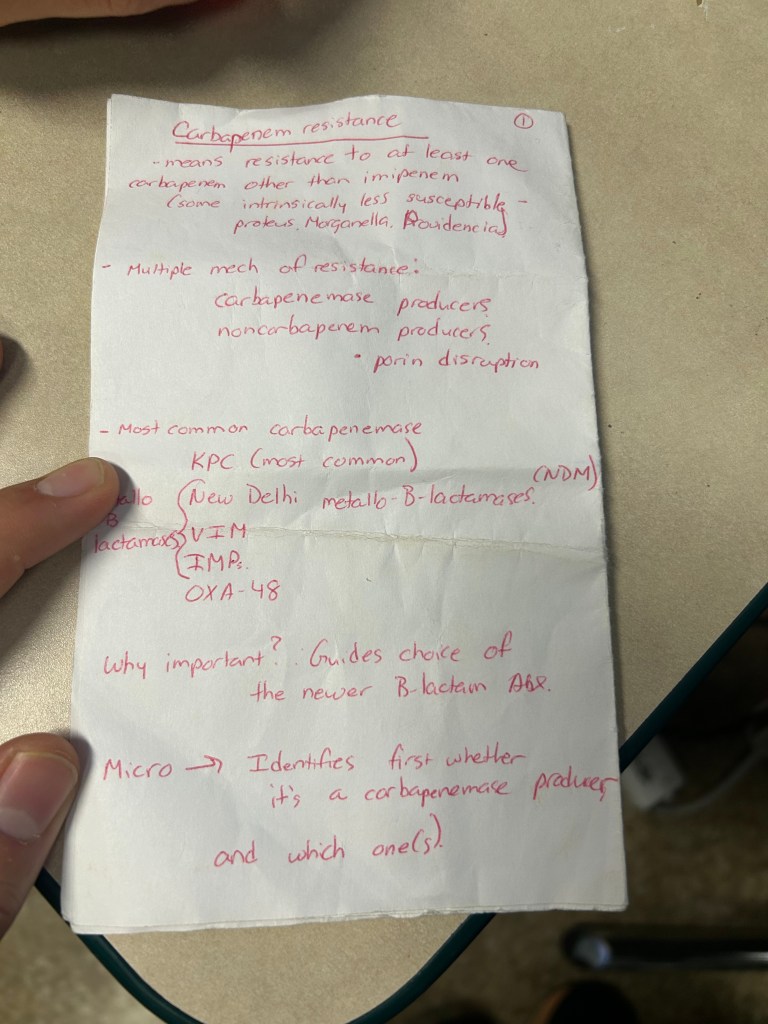 ①
Carbapenem resistance
- means resistance to at least one
carbapenem other than imipenem
(some intrinsically less susceptible -
proteus, Morganella, Providencia)
- Multiple mech of resistance:
carbapenemase producers
noncarbapenem producers
• porin disruption
- Most common carbapenemase
KPC (most common)
(NDM)
New Delhi metallo-B-lactamases.
allo
B
lactamases
VIM
IMPs.
OXA-48
Why important? Guides choice of
the newer B-lactam Abx.
Micro → Identifies first whether
it's a carbapenemase producer
and which one(s).